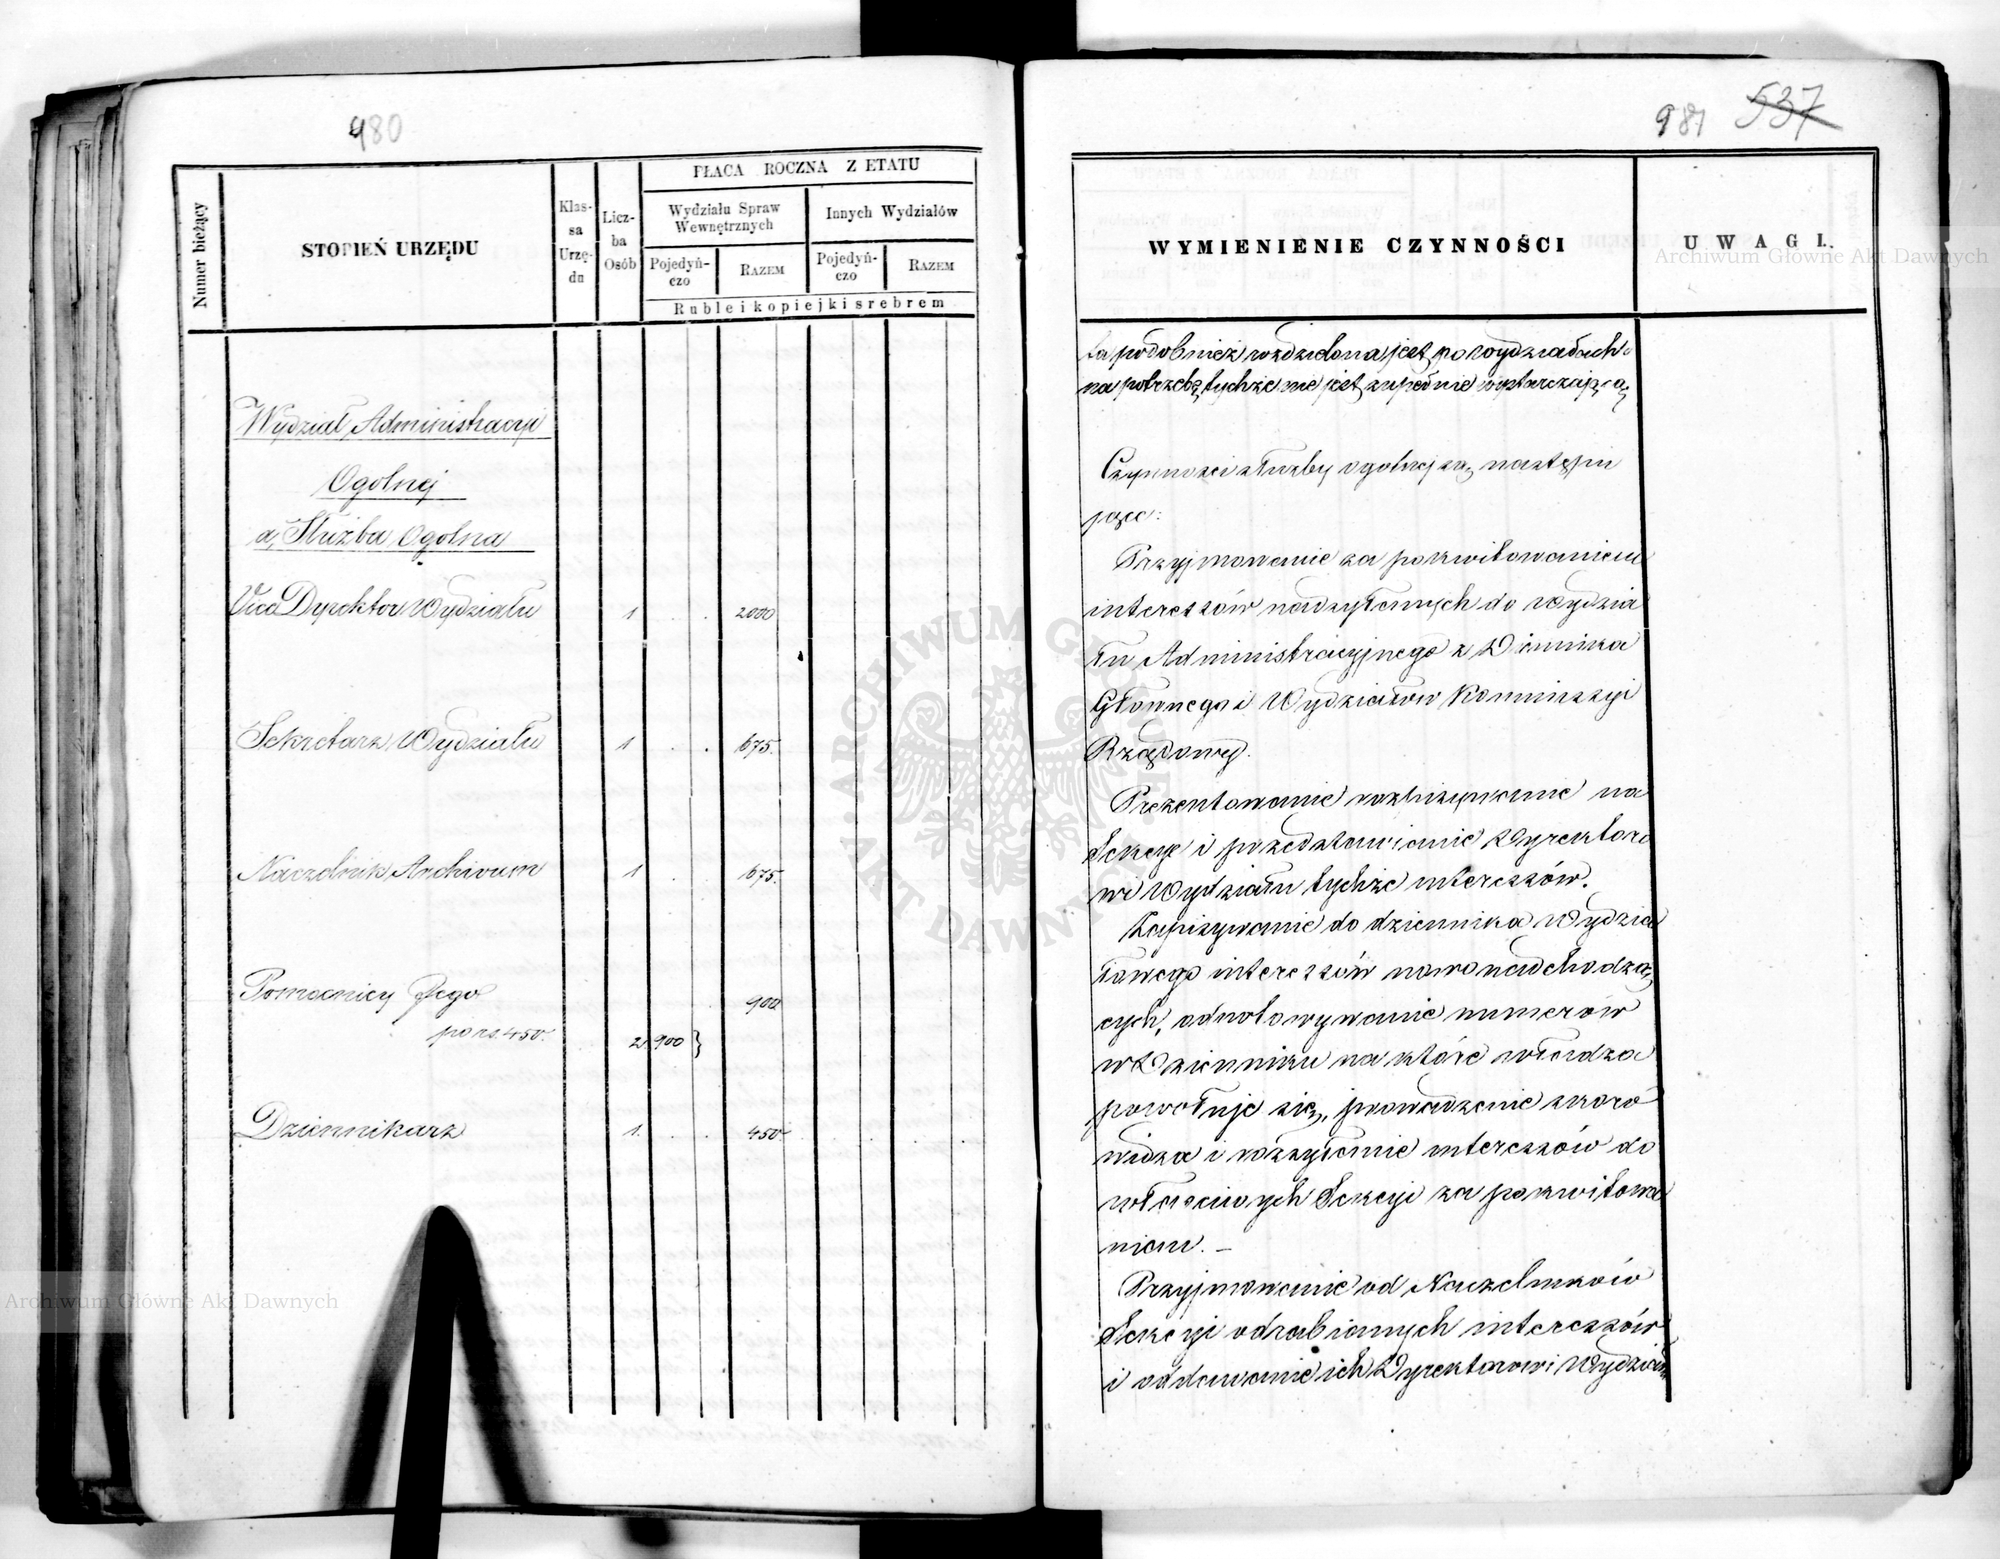 480
Numer bieżący
STOPIEŃ URZĘDU
Klas-
sa
Urzę-
du
Licz-
ba
Osób
PŁACA ROCZNA Z ETATU
Wydziału Spraw
Wewnętrznych
Innych Wydziałów
Pojedyń-
czo
RAZEM
Pojedyń-
czo
RAZEM
Ruble i kopiejki srebrem
Wydział Administracyi
Ogolnej
a, Służba Ogolna
Vice Dyrektor Wydziału 1 . . 2000
Sekretarz Wydziału 1 . . 675.
Naczelnik Archivum 1 . . 675.
Pomocnicy Jego 900
po rs. 450. 2 900 }
Dziennikarz 1. . . 450
981 537
WYMIENIENIE CZYNNOŚCI
UWAGI.
ta podobnież rozdzielona jest po wydziałach
na potrzebę tychże nie jest zupełnie wystarczającą
Czynności służby ogolnej są następu
jące:
Przyjmowanie za pokwitowaniem
interessów nadsyłanych do Wydzia
łu Administracyjnego z Dziennika
Głownego i Wydziałow Kommissyi
Rządowej.
Prezentowanie rozpisywanie na
Sekcye i przedstawianie Dyrektoro
wi Wydziału tychże interessów.
Zapisywanie do dziennika Wydzia
łowego interessów nowo nadchodzą
cych, odnotowywanie numerów
w Dzienniku na które władza
powołuje się, prowadzenie skoro
widza i rozsyłanie interessów do
właściwych Sekcyi za pokwitowa
niem. —
Przyjmowanie od Naczelników
Sekcyi odrabianych interessów
i oddawanie ich Dyrektorowi Wydziału
Archiwum Główne Akt Dawnych
Archiwum Główne Akt Dawnych